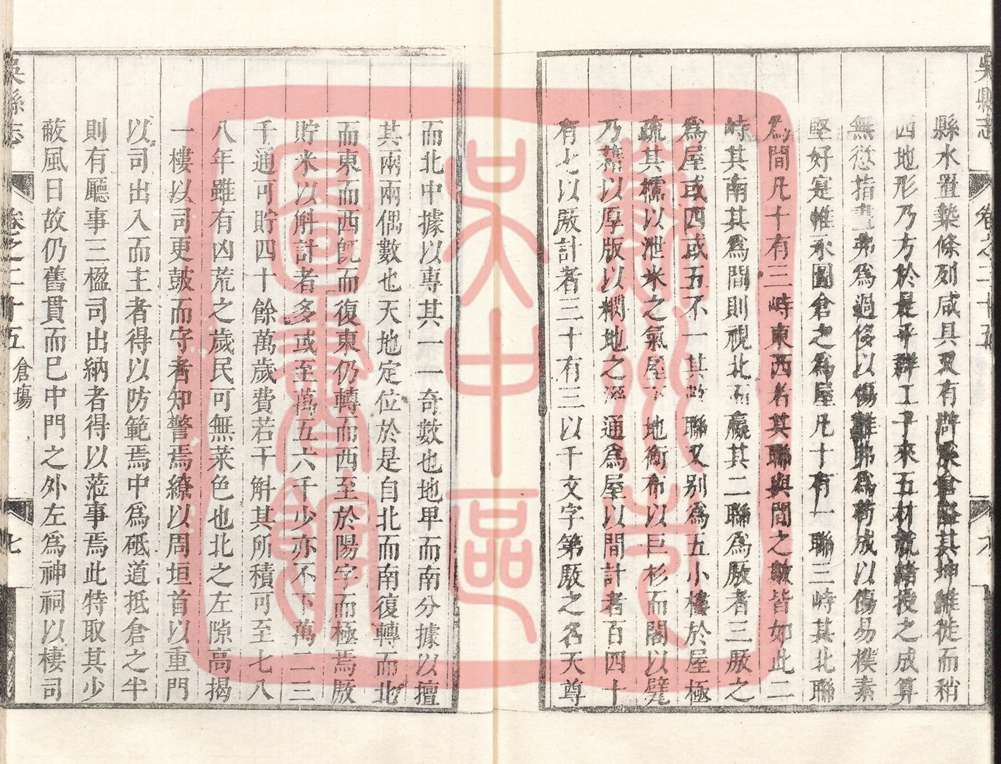 吳縣志
卷之二十五
六
縣水置築條列咸具又有濟農倉臨其坤維徙而稍
西地形乃方於是乎群工子來五材就緒授之成算
無愆指畫弗為過侈以傷難弗為茍成以傷易樸素
堅好寔惟永圖倉之為屋凡十有一聯三峙其北聯
為間凡十有三峙東西者其聯與間之數皆如此二
峙其南其為間則視北而贏其二聯為厫者三厫之
為屋或四或五不一其
聯又別為五小樓於屋極
疏其櫺以泄米之氣屋
地衡布以巨杉而閣以甓
乃藉以厚版以
地之
通為屋以間計者百四十
有七以厫計者三十有三以千文字第厫之名天尊
而北中據以專其一一奇數也地卑而南分據以擅
其兩兩偶數也天地定位於是自北而南復轉而北
而東而西旣而復東仍轉而西至於陽字而極焉厫
貯米以斛計者多或至萬五六千少亦不下萬二三
千通可貯四十餘萬歲費若干斛其所積可至七八
八年雖有凶荒之歲民可無菜色也北之左隙高揭
一樓以司更鼓而守者知警焉繚以周垣首以重門
以司出入而主者得以防範焉中為砥道抵倉之半
則有廳事三楹司出納者得以蒞事焉此特取其少
蔽風日故仍舊貫而已中門之外左為神祠以棲司
吳縣志
卷之二十五
倉場
七
吳中區
圖書館